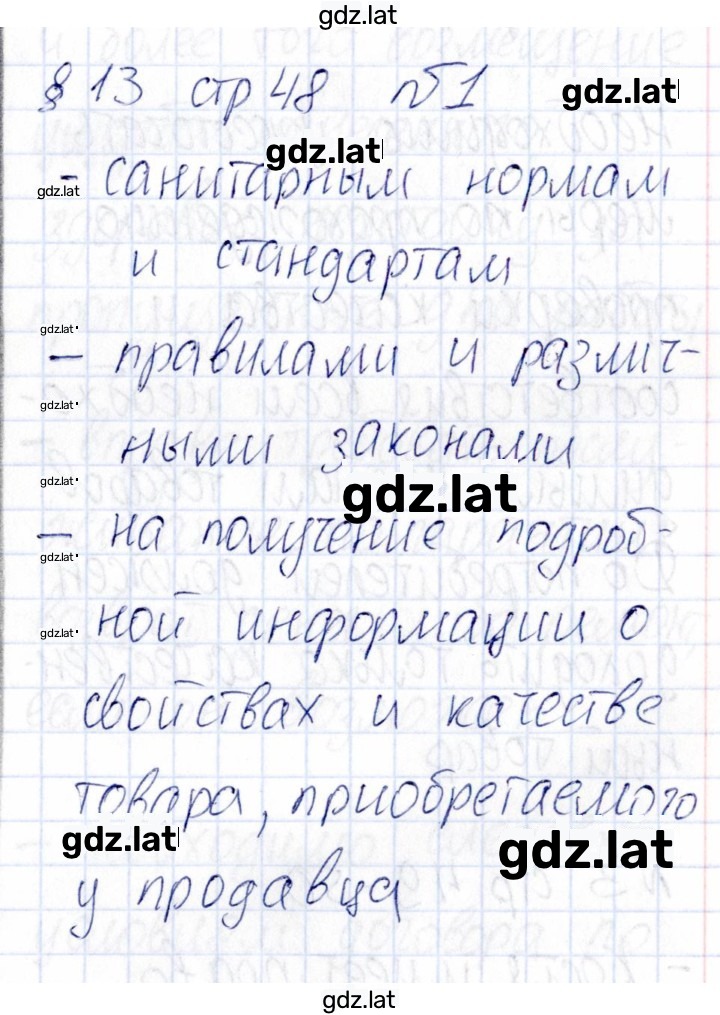 gdz.lat
§ 13 стр 48 №1
gdz.lat
gdz.lat
- санитарным нормам
gdz.lat
и стандартам
gdz.lat
— правилами и различ-
gdz.lat
ными законами
gdz.lat
gdz.lat
— на получение подроб-
gdz.lat
ной информации о
gdz.lat
свойствах и качестве
товара, приобретаемого
gdz.lat
gdz.lat
у продавца
gdz.lat